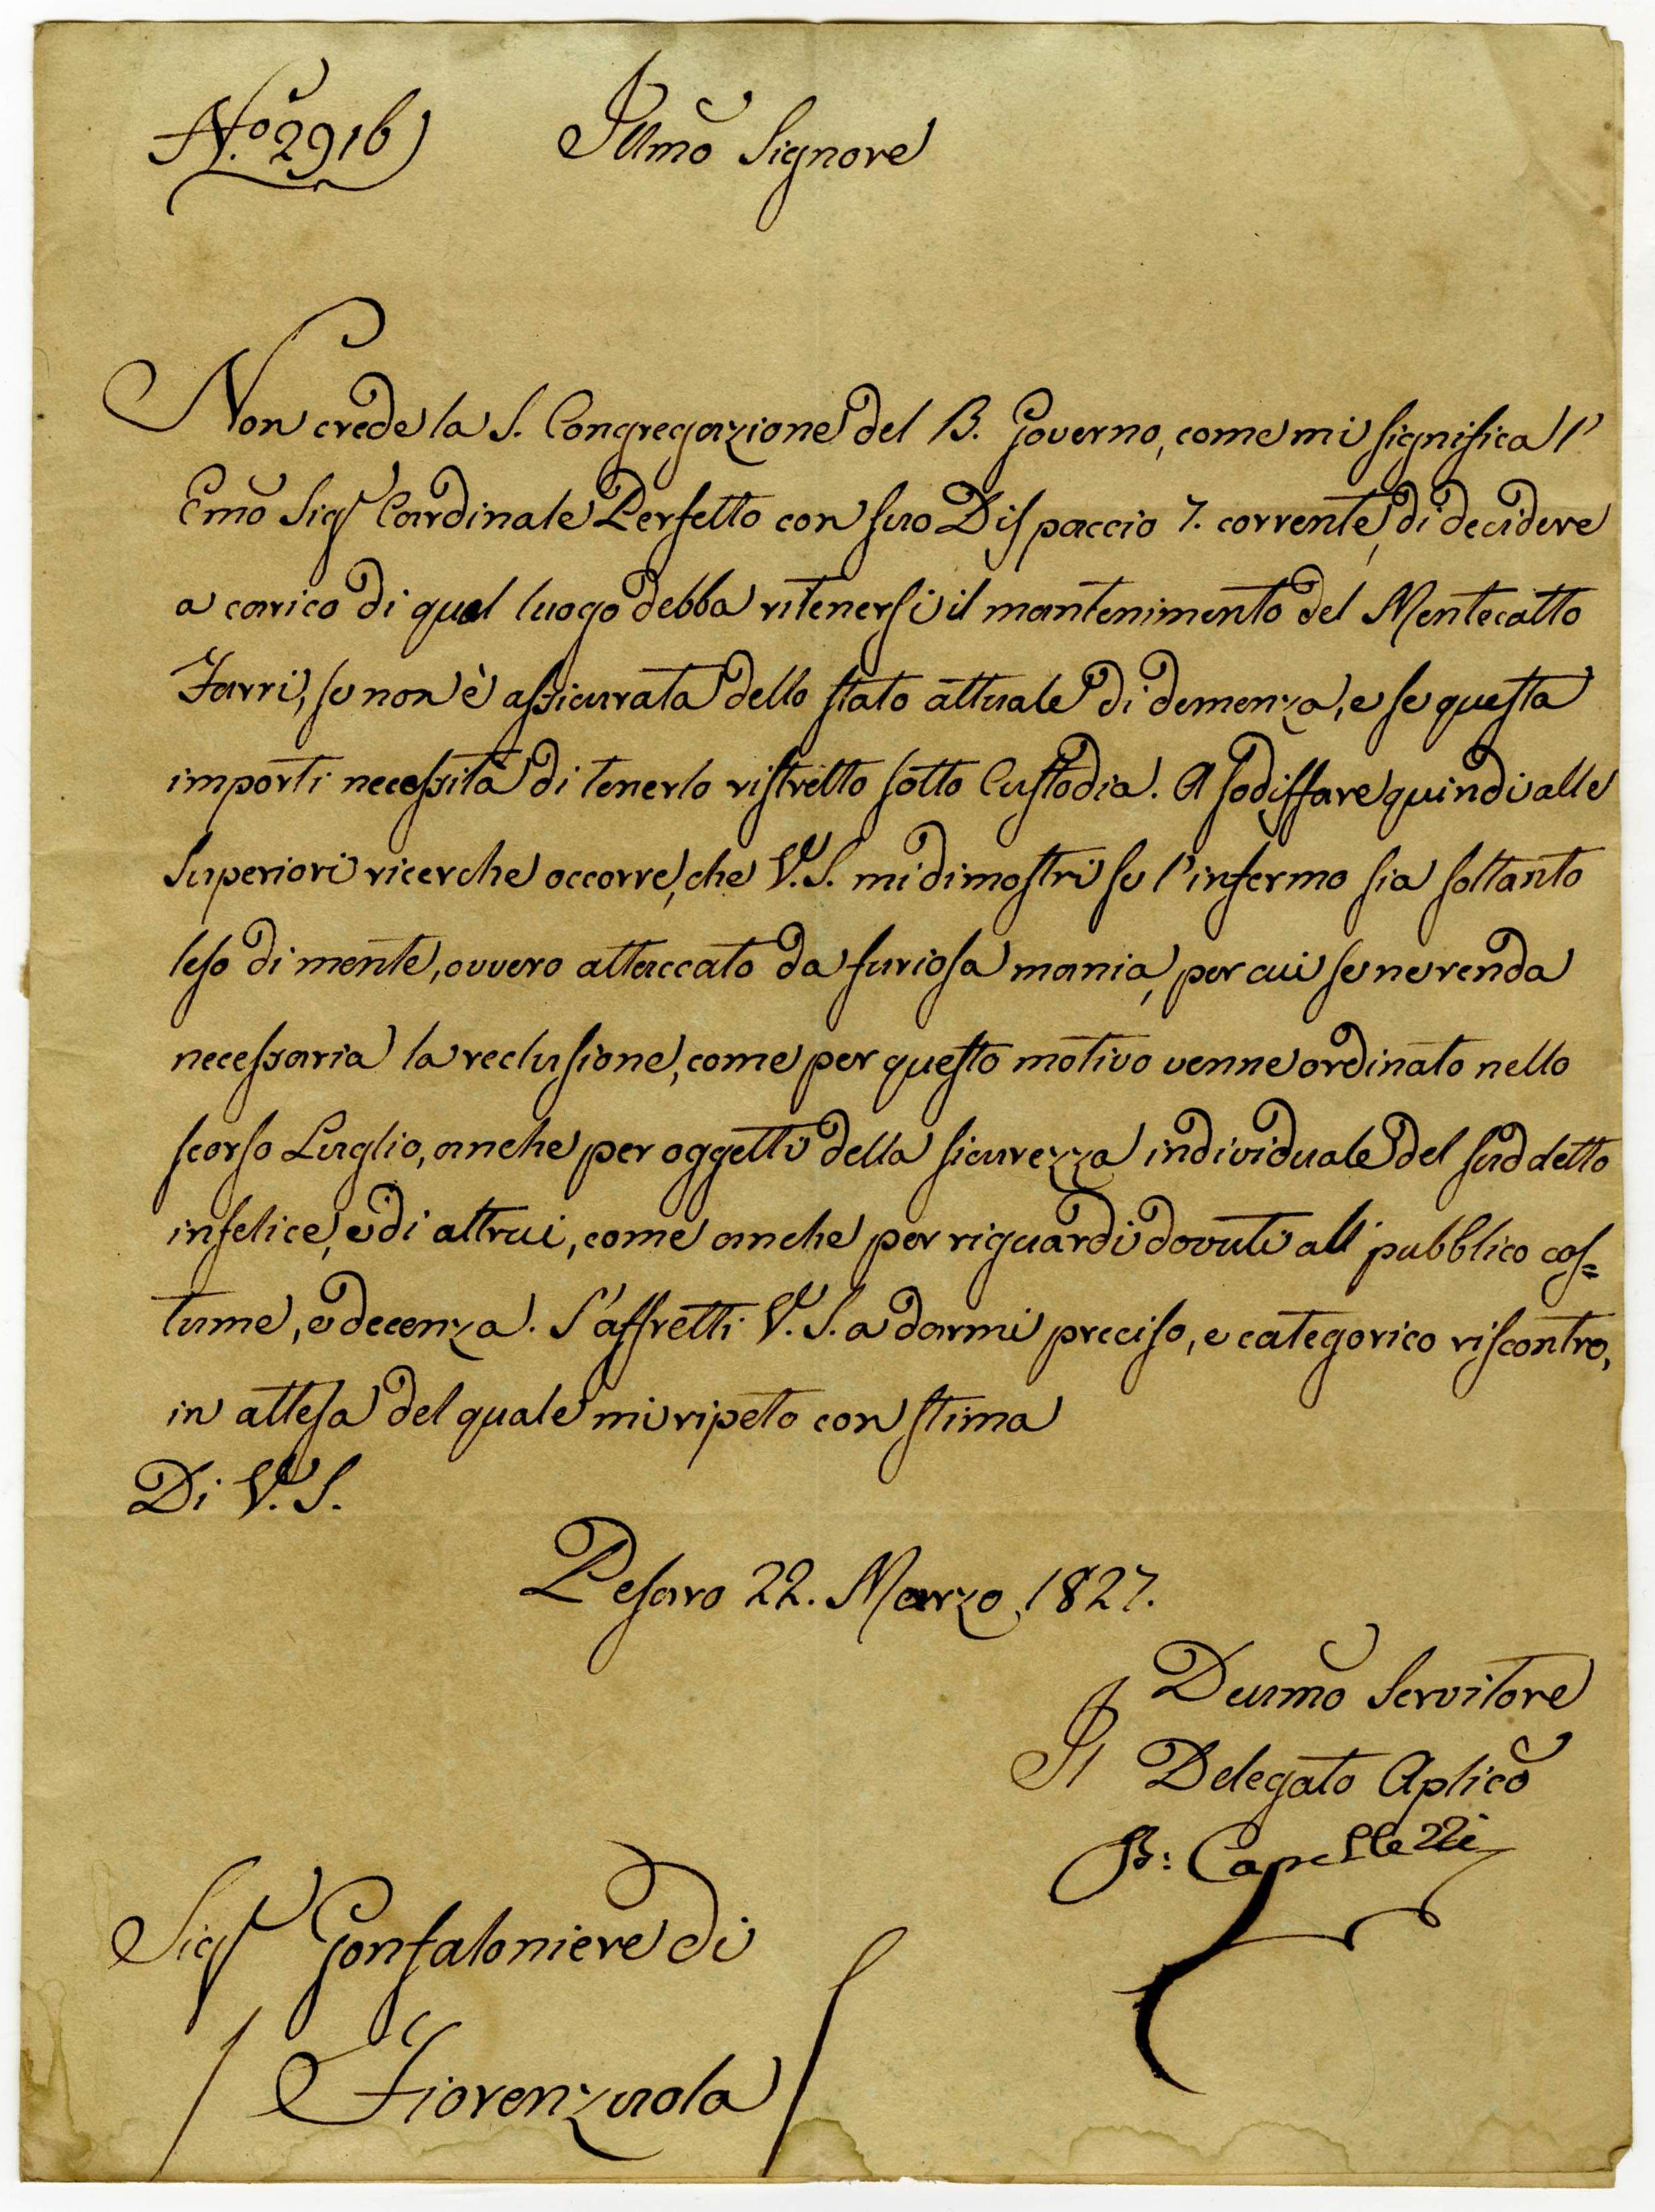 N.º 2916
Illmõ Signore
Non crede la S. Congregazione del B. Governo, come mi significa l'
Emõ Sigr Cardinale Perfetto con suo Dispaccio 7. corrente, di decidere
a carico di qual luogo debba ritenersi il mantenimento del Mentecatto
Farri, se non è assicurata dello stato attuale di demenza, e se questa
importi necessità di tenerlo ristretto sotto Custodia. A sodisffare quindi alle
Superiori ricerche occorre, che V.S. mi dimostri se l'infermo sia soltanto
leso di mente, ovvero attaccato da furiosa mania, per cui se ne renda
necessaria la reclusione, come per questo motivo venne ordinato nello
scorso Luglio, anche per oggetti della sicurezza individuale del suddetto
infelice, e di altrui, come anche per riguardi dovuti all pubblico cos=
tume, e decenza. S'affretti V.S. a darmi preciso, e categorico riscontro,
in attesa del quale mi ripeto con stima
Di V.S.
Pesaro 22. Marzo 1827.
Devmõ Servitore
Il Delegato Aplicõ
B: Capelletti
Sigr Gonfaloniere di
Fiorenzuola